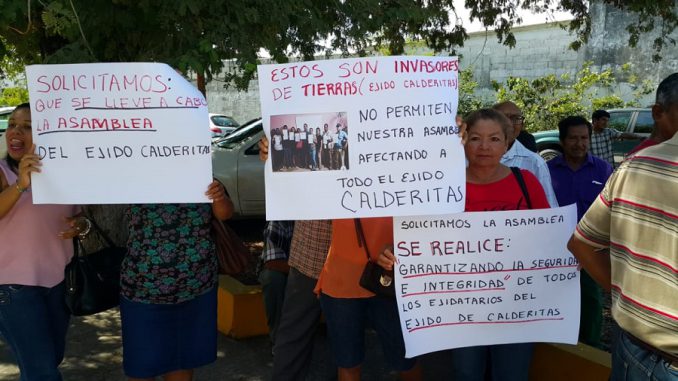 SOLICITAMOS:
QUE SE LLEVE A CABO
LA ASAMBLEA
DEL EJIDO CALDERITAS
ESTOS SON INVASORES
DE TIERRAS (EJIDO CALDERITAS)
NO PERMITEN
NUESTRA ASAMBLEA
AFECTANDO A
TODO EL EJIDO
CALDERITAS
SOLICITAMOS LA ASAMBLEA
SE REALICE:
"GARANTIZANDO LA SEGURIDAD
E INTEGRIDAD" DE TODOS
LOS EJIDATARIOS DEL
EJIDO DE CALDERITAS